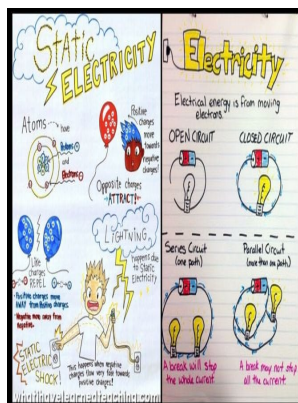 STATIC
ELECTRICITY
Atoms have
Protons +
and
Electrons -
Positive
charges
move
towards
negative
charges!
Opposite charges
ATTRACT!
Like
charges
REPEL
• Positive charges move
AWAY from Positive charges
• Negative move away from
negative.
LIGHTNING
happens due
to Static
Electricity
STATIC
ELECTRIC
SHOCK!
This happens when negative
charges flow very fast towards
positive charges!
whatihavelearnedteaching.com
Electricity
Electrical energy is from moving
electrons.
OPEN CIRCUIT
CLOSED CIRCUIT
Series Circuit
(one path)
Parallel Circuit
(more than one path)
A break will stop
the whole current.
A break may not stop
all the current.